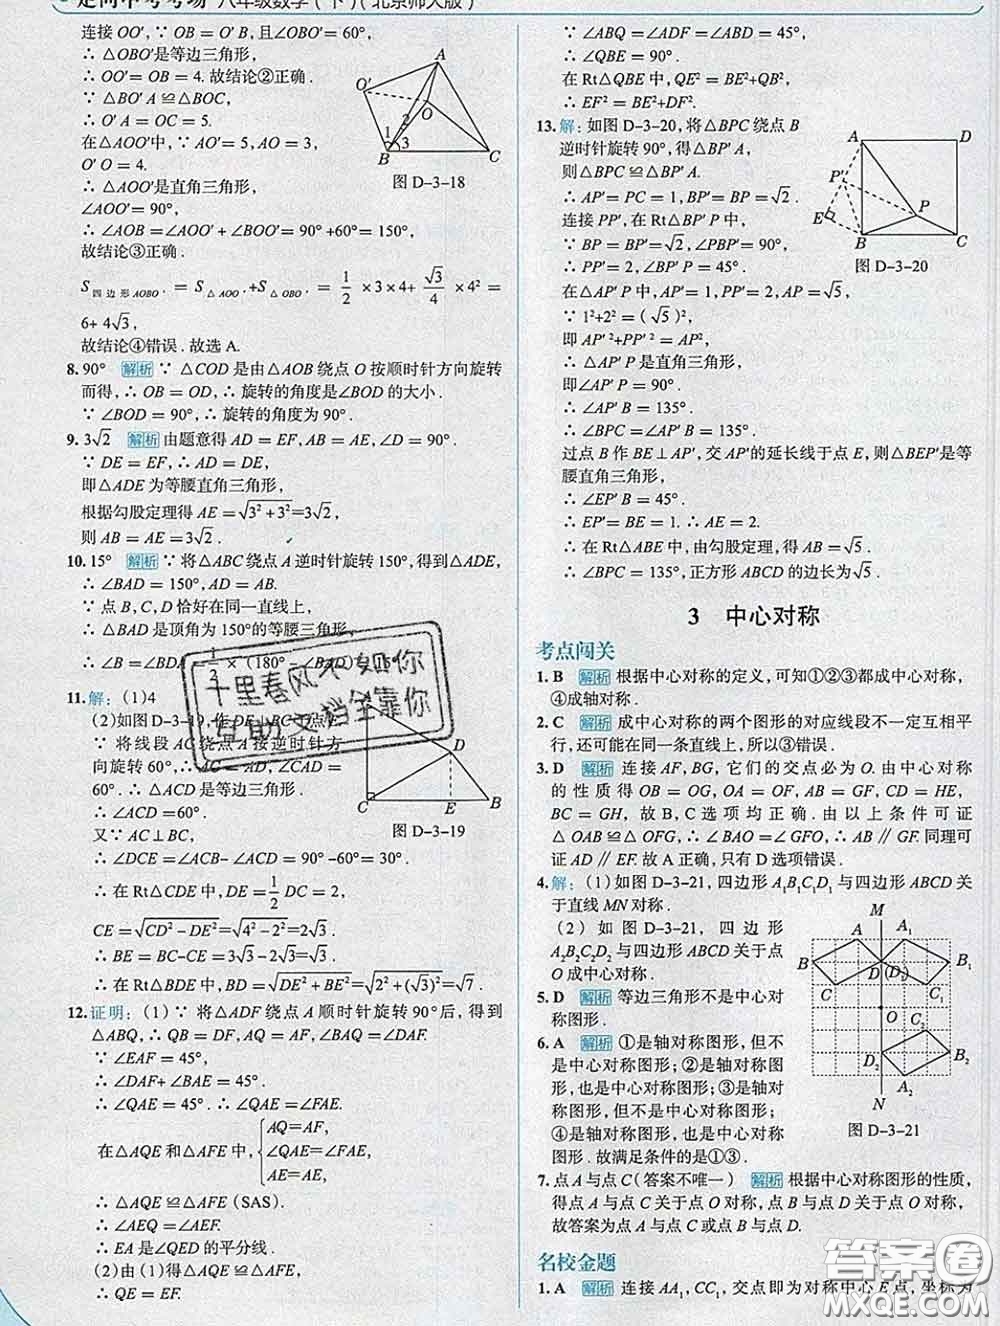 走向中考考场 八年级数学(下)(北京师大版)
连接OO′,∵ OB = O′ B,且∠OBO′ = 60°,
∴ △OBO′是等边三角形,
∴ OO′ = OB = 4. 故结论②正确 .
∵ △BO′ A ≌△BOC,
∴ O′ A = OC = 5.
在△AOO′中,∵ AO′ = 5, AO = 3,
O′ O = 4.
∴ △AOO′是直角三角形,
∠AOO′ = 90°,
故∠AOB = ∠AOO′ + ∠BOO′ = 90° +60° = 150°,
故结论③正确 .
S四边形AOBO′ = S△AOO′+S△OBO′ = 1/2 ×3×4+ √3/4 ×4² =
6+ 4√3,
故结论④错误 . 故选 A.
A
O′
O
1
2
3
B
C
图 D-3-18
8. 90° 解析 ∵ △COD 是由△AOB 绕点 O 按顺时针方向旋转
而得,∴ OB = OD,∴ 旋转的角度是∠BOD 的大小 .
∵ ∠BOD = 90°,∴ 旋转的角度为 90° .
9. 3√2 解析 由题意得 AD = EF, AB = AE, ∠D = 90° .
∵ DE = EF,∴ AD = DE,
即△ADE 为等腰直角三角形,
根据勾股定理得 AE = √(3² + 3²)=3√2,
则 AB = AE = 3√2 .
10. 15° 解析 ∵ 将△ABC 绕点 A 逆时针旋转 150°,得到△ADE,
∴ ∠BAD = 150°, AD = AB.
∵ 点 B, C, D 恰好在同一直线上,
∴ △BAD 是顶角为 150°的等腰三角形,
∴ ∠B = ∠BDA = 1/2 × (180° - ∠BAD) = 15° .
千里春风不如你
互助文档全靠你
11. 解:(1)4
(2)如图 D-3-19,作 DE⊥BC 于点 E.
∵ 将线段 AC 绕点 A 按逆时针方
向旋转 60°,∴ AC = AD, ∠CAD =
60° .∴ △ACD 是等边三角形 .
∴ ∠ACD =60° .
又∵ AC⊥BC,
∴ ∠DCE =∠ACB- ∠ACD = 90° -60° = 30° .
∴ 在 Rt△CDE 中, DE = 1/2 DC = 2,
CE = √(CD² - DE²) = √(4² - 2²) = 2√3 .
∴ BE = BC-CE = 3√3 -2√3 = √3 .
∴ 在 Rt△BDE 中, BD = √(DE² + BE²) = √(2² + (√3)²) = √7 .
D
C
E
B
图 D-3-19
12. 证明:(1)∵ 将△ADF 绕点 A 顺时针旋转 90°后,得到
△ABQ,∴ QB = DF, AQ = AF, ∠BAQ = ∠DAF.
∵ ∠EAF = 45°,
∴ ∠DAF+ ∠BAE = 45° .
∴ ∠QAE = 45° . ∴ ∠QAE = ∠FAE.
在△AQE 和△AFE 中, { AQ = AF,
∠QAE = ∠FAE,
AE = AE,
∴ △AQE ≌△AFE (SAS).
∴ ∠AEQ = ∠AEF.
∴ EA 是∠QED 的平分线 .
(2)由(1)得△AQE ≌△AFE,
∴ QE = EF.
∵ ∠ABQ = ∠ADF = ∠ABD = 45°,
∴ ∠QBE = 90° .
在 Rt△QBE 中, QE² = BE²+QB²,
∴ EF² = BE²+DF².
13. 解:如图 D-3-20,将△BPC 绕点 B
逆时针旋转 90°,得△BP′ A,
则△BPC ≌△BP′ A.
∴ AP′ = PC = 1, BP′ = BP = √2 .
连接 PP′,在 Rt△BP′ P 中,
∵ BP = BP′ = √2, ∠PBP′ = 90°,
∴ PP′ = 2, ∠BP′ P = 45° .
在△AP′ P 中, AP′ = 1, PP′ = 2, AP = √5,
∵ 1²+2² = (√5)²,
即 AP′ ²+PP′ ² = AP²,
∴ △AP′ P 是直角三角形,
即∠AP′ P = 90° .
∴ ∠AP′ B = 135° .
∴ ∠BPC = ∠AP′ B = 135° .
过点 B 作 BE⊥AP′,交 AP′的延长线于点 E,则△BEP′是等
腰直角三角形,
∴ ∠EP′ B = 45° .
∴ EP′ = BE = 1.∴ AE = 2.
∴ 在 Rt△ABE 中,由勾股定理,得 AB = √5 .
∴ ∠BPC = 135°,正方形 ABCD 的边长为√5 .
A
D
P′
P
E
B
C
图 D-3-20
3 中心对称
考点闯关
1. B 解析 根据中心对称的定义,可知①②③都成中心对称,
④成轴对称 .
2. C 解析 成中心对称的两个图形的对应线段不一定互相平
行,还可能在同一条直线上,所以③错误 .
3. D 解析 连接 AF, BG, 它们的交点必为 O. 由中心对称
的性质得 OB = OG, OA = OF, AB = GF, CD = HE,
BC = GH, 故 B, C 选项均正确 . 由以上条件可证
△OAB ≌△OFG,∴ ∠BAO = ∠GFO,∴ AB // GF. 同理可
证 AD // EF. 故 A 正确,只有 D 选项错误 .
4. 解:(1)如图 D-3-21,四边形 A₁B₁C₁D₁ 与四边形 ABCD 关
于直线 MN 对称 .
(2) 如图 D-3-21, 四边形
A₂B₂C₂D₂ 与四边形 ABCD 关于点
O 成中心对称 .
M
A
A₁
B
D
(D₁)
B₁
C
C₁
O
C₂
D₂
B₂
A₂
N
图 D-3-21
5. D 解析 等边三角形不是中心对
称图形 .
6. A 解析 ①是轴对称图形,但不
是中心对称图形;②是轴对称图
形,也是中心对称图形;③是轴对
称图形,但不是中心对称图形;
④是轴对称图形,也是中心对称
图形 . 故满足条件的是①③ .
7. 点 A 与点 C(答案不唯一) 解析 根据中心对称图形的性质,
得点 A 与点 C 关于点 O 对称,点 B 与点 D 关于点 O 对称 .
故答案为点 A 与点 C 或点 B 与点 D.
名校金题
1. A 解析 连接 AA₁, CC₁, 交点即为对称中心 E 点, 坐标为
答案圈
MXQE.COM